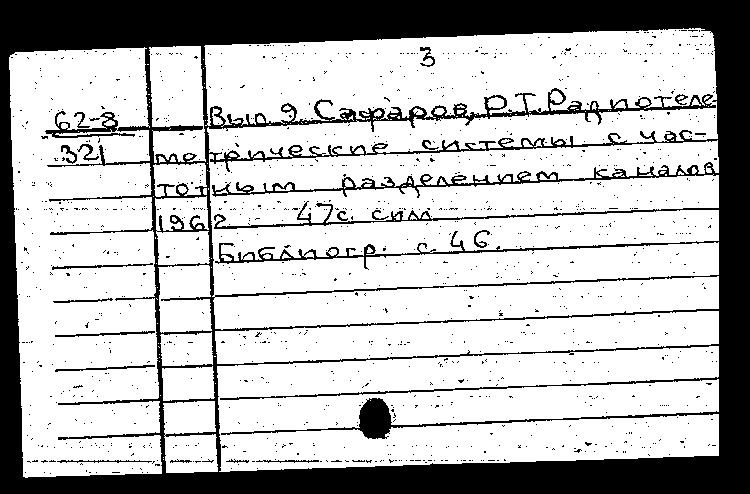 3
62-8 Вып. 9. Сафаров, Р.Т. Радиотеле-
321 метрические системы с час-
тотным разделением каналов
1962 47с. илл.
Библиогр. с 46.